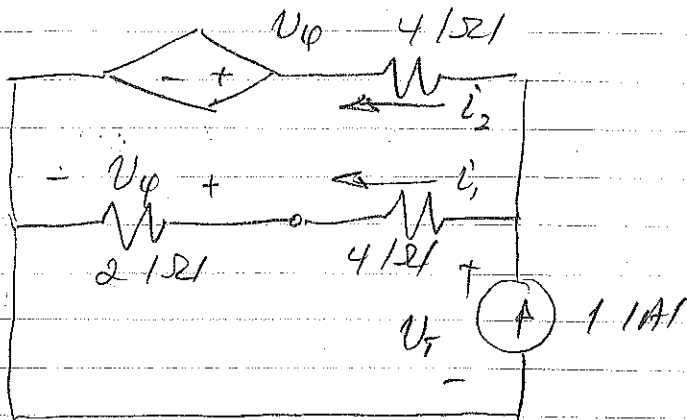 Vφ 4 |Ω|
- +
i₂
- Vφ + i₁
2 |Ω| 4 |Ω|
+
V_T 1 |A|
-